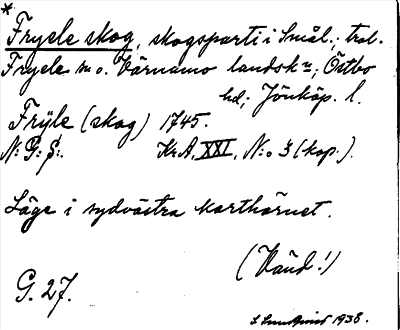 *
Fryele skog, skogsparti i Smål.; trol.
Fryele s:n o. Värnamo landsk:n; Östbo
hd; Jönköp. l.
Frÿle (skog) 1745.
N: G: S:. Kr.A, XXI, N:o 3 (kop.).
Läge i sydvästra karthörnet.
(Vänd!)
G. 27.
1938.